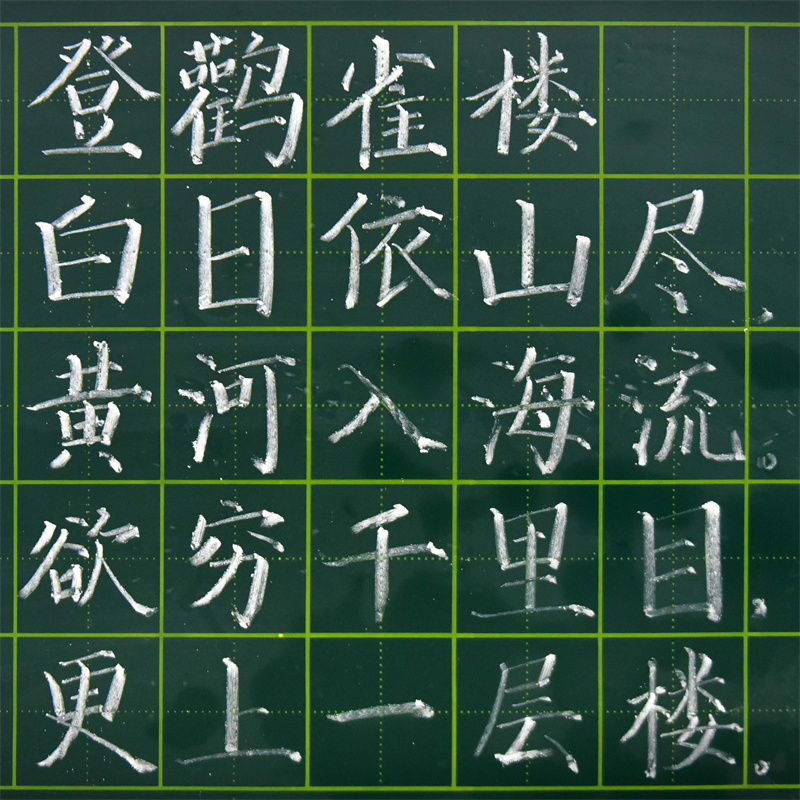 登鸛雀楼
白日依山尽，
黄河入海流。
欲穷千里目，
更上一层楼。